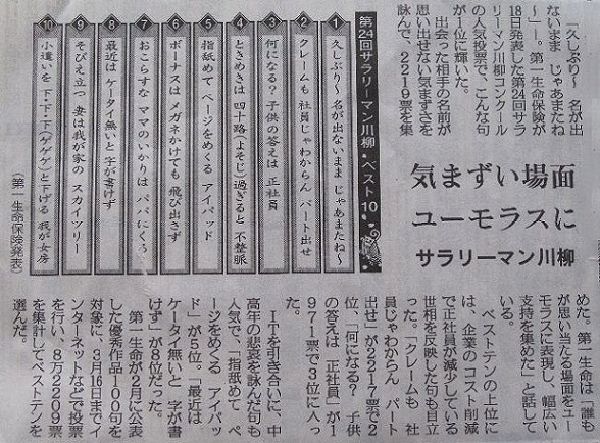 気まずい場面
ユーモラスに
サラリーマン川柳
『久しぶり〜 名が出
ないまま じゃあまたね
〜」―。第一生命保険が
18日発表した第24回サラ
リーマン川柳コンクール
の人気投票で、こんな句
が1位に輝いた。
出会った相手の名前が
思い出せない気まずさを
詠んで、2219票を集
めた。第一生命は「誰も
が思い当たる場面をユー
モラスに表現し、幅広い
支持を集めた」と話して
いる。
ベストテンの上位に
は、企業のコスト削減
で正社員が減少している
世相を反映した句も目立
った。「クレームも 社
員じゃわからん パート
出せ」が2217票で2
位、「何になる? 子供
の答えは 正社員」が1
971票で3位に入っ
た。
ITを引き合いに、中
高年の悲哀を詠んだ句も
人気で、「指舐めて ペ
ージをめくる アイパッ
ド」が5位。「最近は
ケータイ無いと 字が書
けず」が8位だった。
第一生命が2月に公表
した優秀作品100句を
対象に、3月16日までイ
ンターネットなどで投票
を行い、8万2209票
を集計してベストテンを
選んだ。
第24回サラリーマン川柳 ベスト10
1 久しぶり〜 名が出ないまま じゃあまたね〜
2 クレームも 社員じゃわからん パート出せ
3 何になる? 子供の答えは 正社員
4 ときめきは 四十路(よそじ)過ぎると 不整脈
5 指舐めて ページをめくる アイパッド
6 ボーナスは メガネかけても 飛び出さず
7 おこらすな ママのいかりは パパにくる
8 最近は ケータイ無いと 字が書けず
9 そびえ立つ 妻は我が家の スカイツリー
10 小遣いを 下・下・下(ゲゲゲ)と下げる 我が女房
(第一生命保険発表)